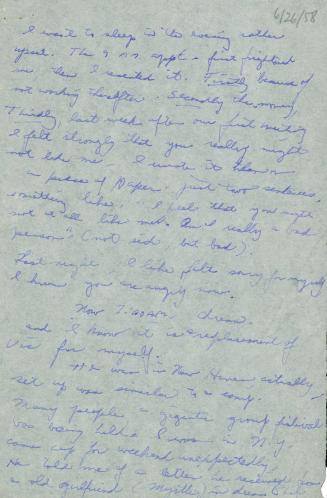 6/26/58
I went to sleep in the evening rather
upset. The 9 A.M. appt. first frightened
me, then I resented it. Firstly because of
not working thereafter. Secondly the money,
Thirdly, last week after our first meeting
I felt strongly that you really might
not like me. I wrote it down on
a piece of paper. Just two sentences.
something like, "I feel that you might
not at all like me. Am I really a bad
person" (not sick, but bad).
Last night I like felt sorry for myself
I knew you are angry now.
Now I dream.
and I know it is a replacement of
for myself.
He was in New Haven, actually
set up was similar to a camp.
Many people a gigantic group festival
was being held. I was in N.Y.
came up for weekend unexpectedly.
He told me of a letter he received from
a old girlfriend (Myrtle) in dream